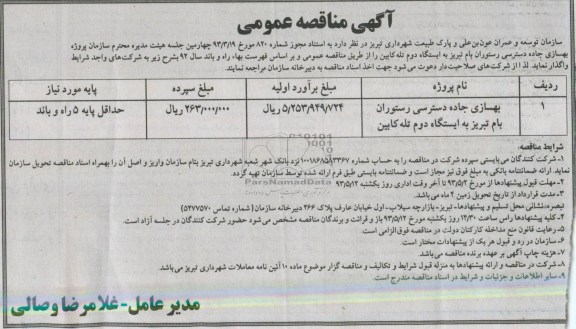 آگهی مناقصه عمومی
سازمان توسعه و عمران عون‌بن‌علی و پارک طبیعت شهرداری تبریز در نظر دارد به استناد مجوز شماره ۸۲۰ مورخ ۹۳/۳/۱۹ چهارمین جلسه هیئت مدیره محترم سازمان پروژه
بهسازی جاده دسترسی رستوران بام تبریز به ایستگاه دوم تله کابین را از طریق مناقصه عمومی و بر اساس فهرست بهاء راه و باند سال ۹۲ بشرح زیر به شرکت‌های واجد شرایط
واگذار نماید. لذا از شرکت‌های صلاحیت‌دار دعوت می‌شود جهت اخذ اسناد مناقصه به دبیرخانه سازمان مراجعه نمایند.
ردیف نام پروژه مبلغ برآورد اولیه مبلغ سپرده پایه مورد نیاز
۱ بهسازی جاده دسترسی رستوران ۵/۲۵۳/۹۴۹/۷۲۴ ریال ۲۶۳/۰۰۰/۰۰۰ ریال حداقل پایه ۵ راه و باند
بام تبریز به ایستگاه دوم تله کابین
شرایط مناقصه:
۱- شرکت کنندگان می‌بایستی سپرده شرکت در مناقصه را به حساب شماره ۱۰۰۱۸۶۸۵۸۳۳۶۷ نزد بانک شهر شعبه شهرداری تبریز بنام سازمان واریز و اصل آن را بهمراه اسناد مناقصه تحویل سازمان
نماید. ارائه ضمانتنامه بانکی به مبلغ فوق نیز مجاز است و ضمانتنامه بایستی طبق فرم ارائه شده توسط سازمان تهیه گردد.
ParsNamadData
۲- مهلت قبول پیشنهادها از مورخ ۹۳/۵/۲ تا آخر وقت اداری روز یکشنبه ۹۳/۵/۱۲
۳- مدت قرارداد از تاریخ تحویل زمین ۲ ماه می‌باشد.
تبصره: نشانی محل تسلیم و پیشنهادها- تبریز- بازارچه سیلاب- اول خیابان عارف پلاک ۲۶۶ دبیرخانه سازمان (شماره تماس ۵۴۷۷۵۷۰)
۴- کلیه پیشنهادها راس ساعت ۱۲/۳۰ روز یکشنبه مورخ ۹۳/۵/۱۲ باز و قرائت و برندگان مناقصه مشخص می‌شود حضور شرکت کنندگان در جلسه آزاد است.
۵- رعایت قانون منع مداخله کارکنان دولت در مناقصه فوق الزامی است.
۶- سازمان در رد و قبول هر یک از پیشنهادات مختار است.
۷- هزینه چاپ آگهی بر عهده برنده مناقصه می‌باشد.
۸- شرکت در مناقصه و ارائه پیشنهادها به منزله قبول شرایط و تکالیف و مناقصه گزار موضوع ماده ۱۰ آئین نامه معاملات شهرداری تبریز می‌باشد.
۹- سایر اطلاعات و جزئیات و شرایط در اسناد مناقصه مندرج است.
مدیر عامل- غلامرضا وصالی